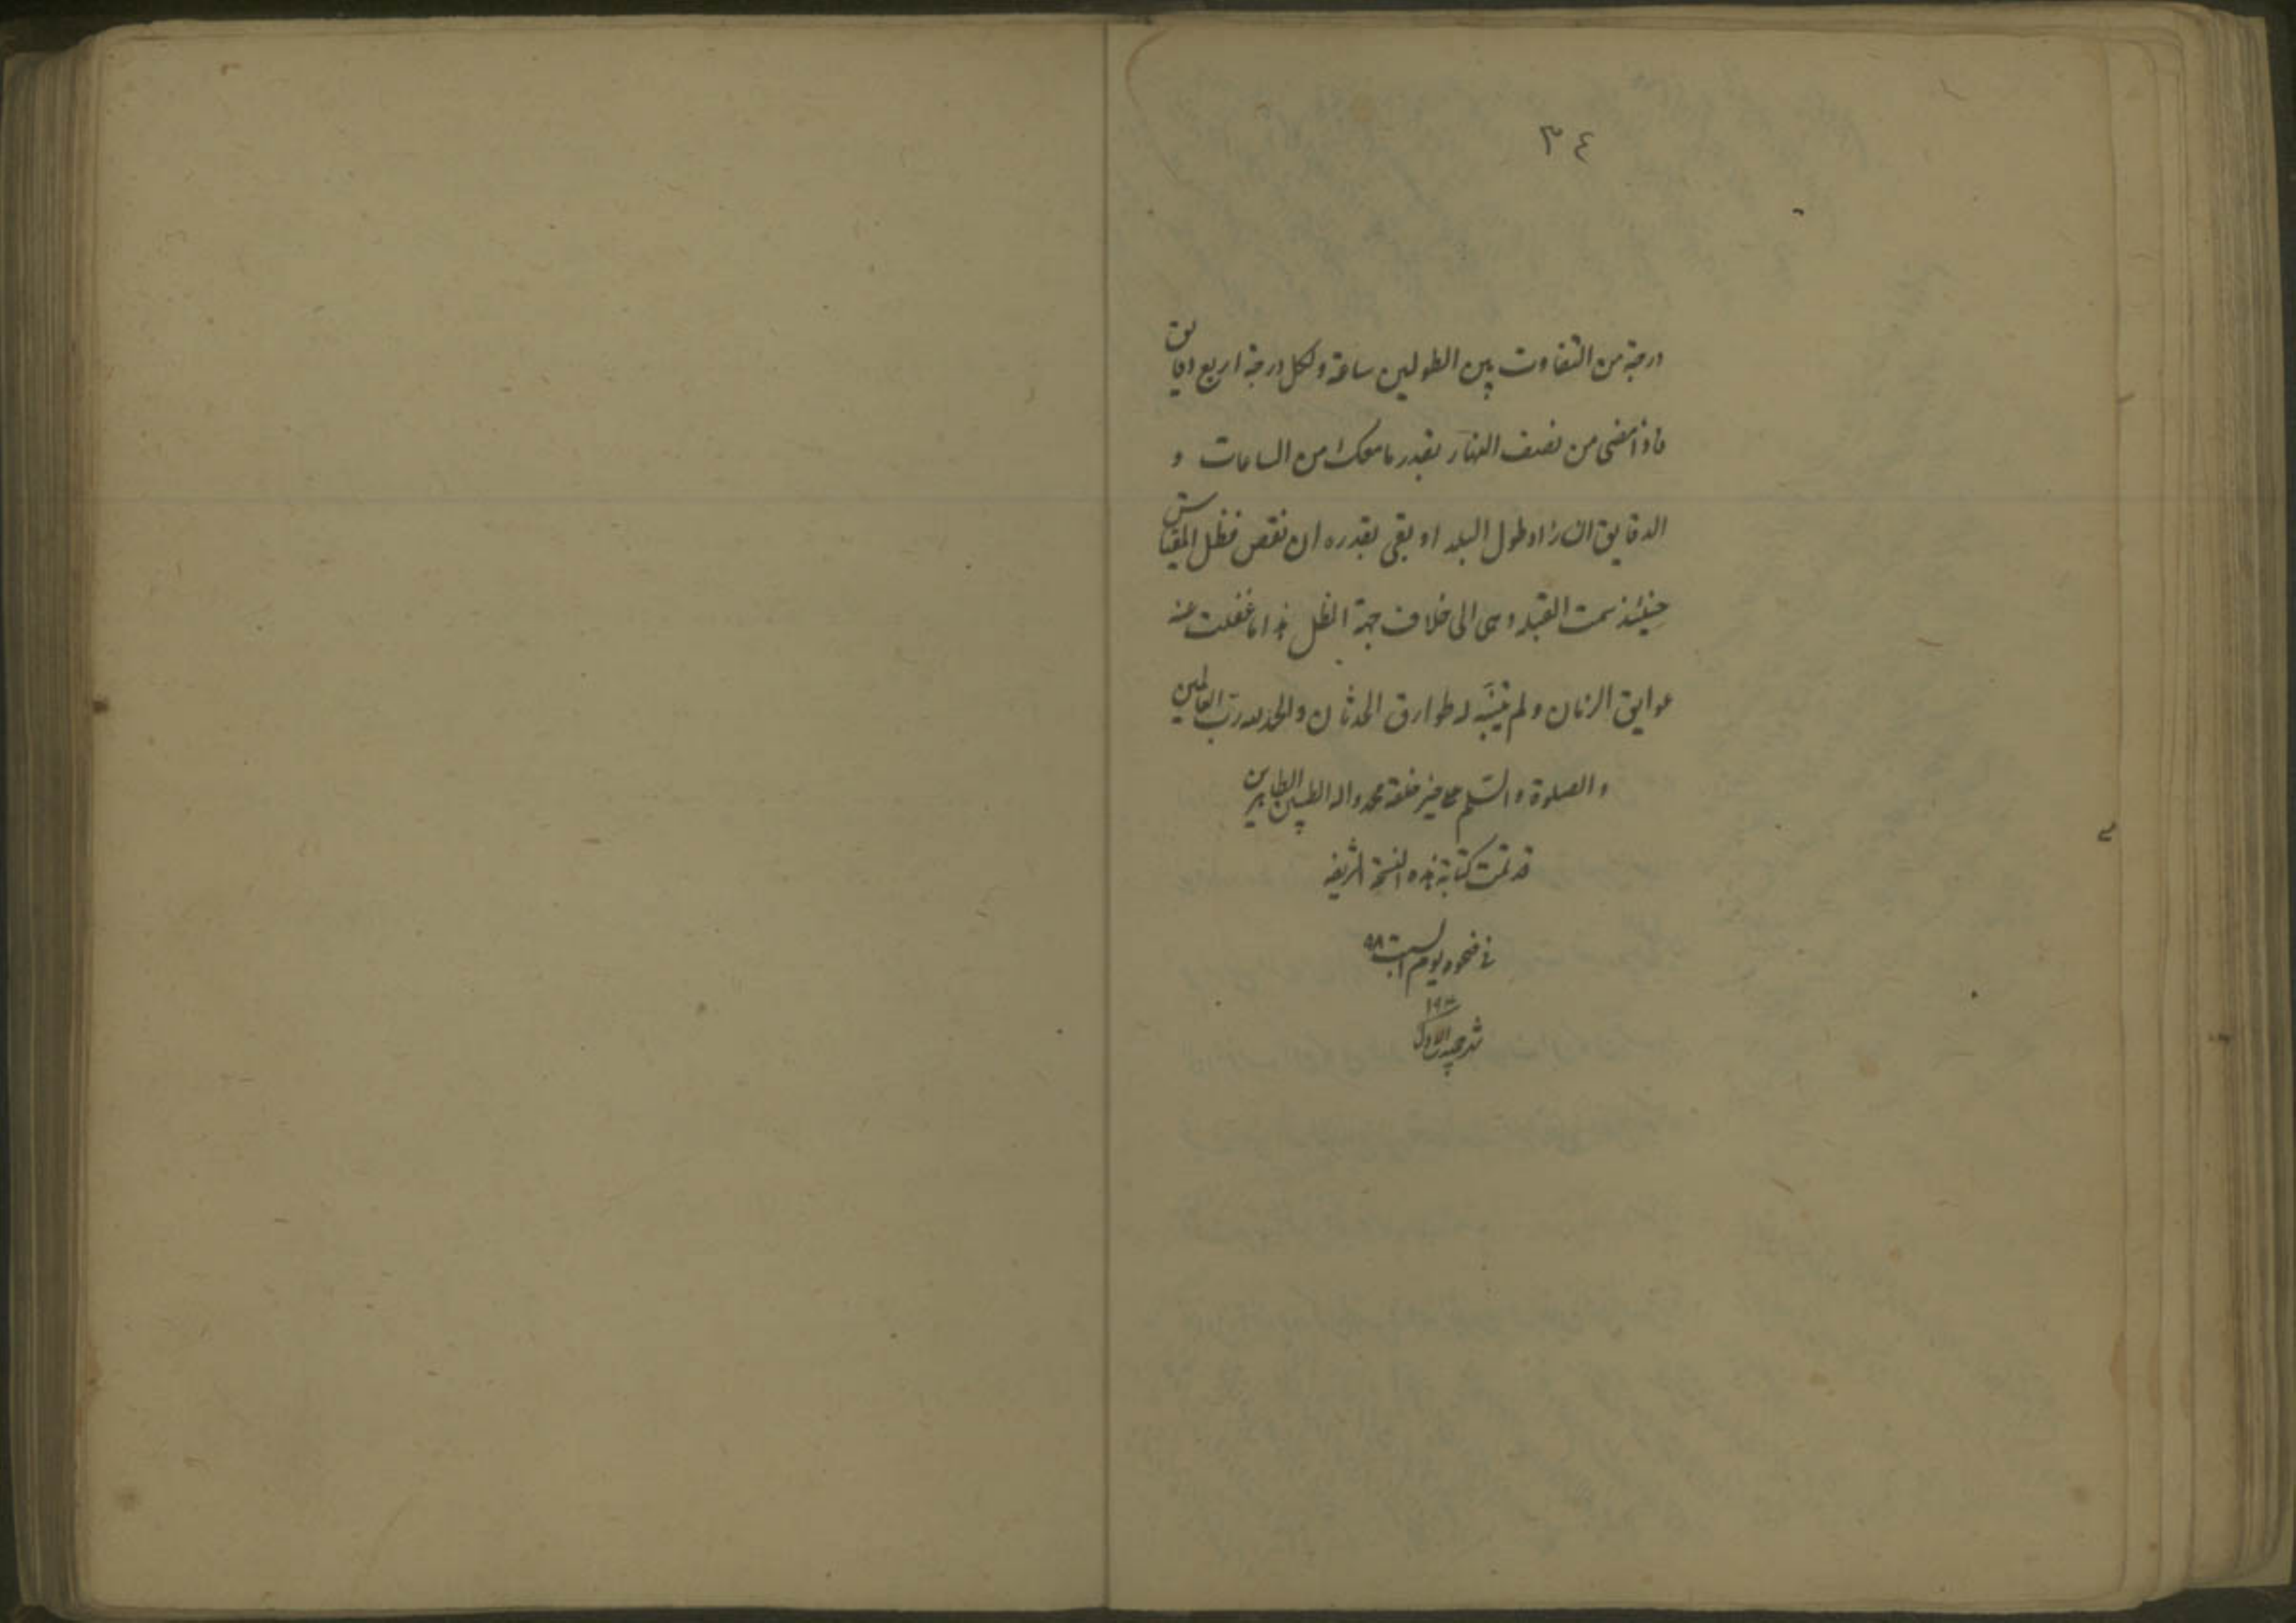 ٣٤
درجة من التفاوت بين الطولين ساعة ولكل درجة اربع دقايق
فاذا مضى من نصف النهار بقدر ما معك من الساعات و
الدقايق ان زاد طول البلد او بقى بقدره ان نقص فظل المقياس
حينئذ سمت القبله وهى الى خلاف جهة الظل هذا ما غفلت عنه
عوايق الزمان ولم يتنبه له طوارق الحدثان والحمد لله رب العالمين
والصلوة والسلم على خير خلقه محمد واله الطيبين الطاهرين
قد تمت كتابة هذه النسخة الشريفه
فى ضحوه يوم السبت
شهر الاول